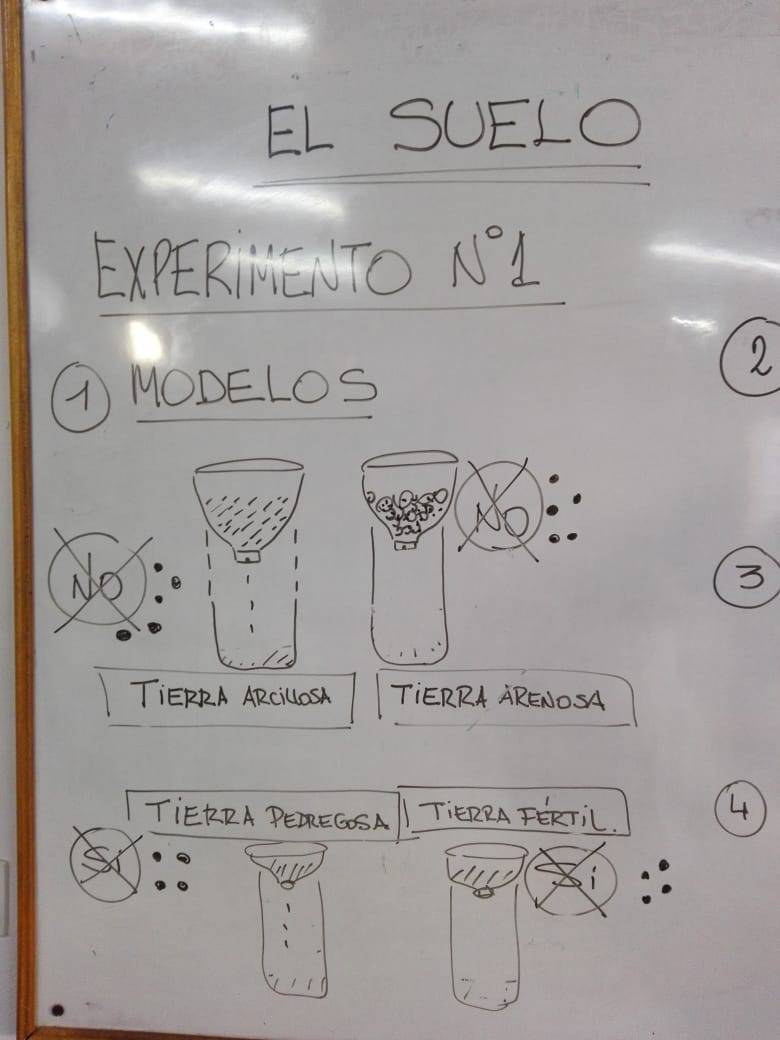 EL SUELO
EXPERIMENTO N°1
1 MODELOS
2
NO
NO
3
TIERRA ARCILLOSA
TIERRA ARENOSA
TIERRA PEDREGOSA
TIERRA FÉRTIL.
4
Si
Sí